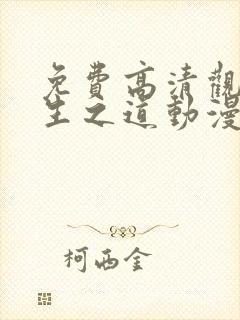 免費高清觀
生之道動漫
柯西金